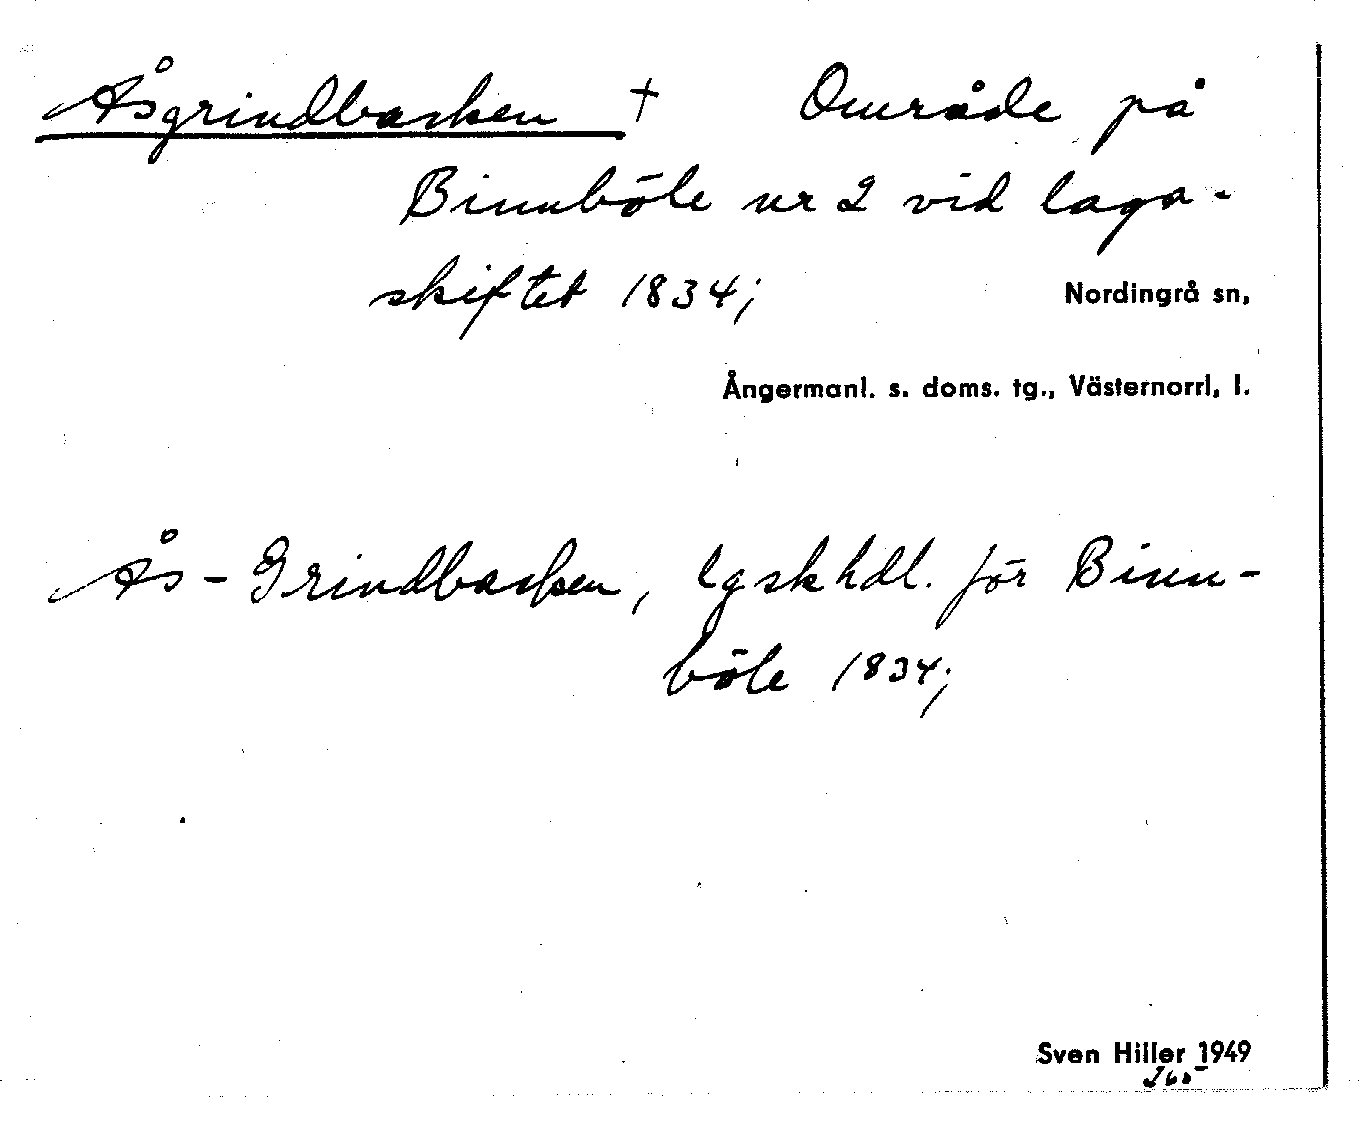 Åsgrindbacken † Område på
Binnböle nr 2 vid laga-
skiftet 1834;
Nordingrå sn,
Ångermanl. s. doms. tg., Västernorrl. l.
Ås-Grindbacken, lgskhdl. för Binn-
böle 1834;
Sven Hiller 1949